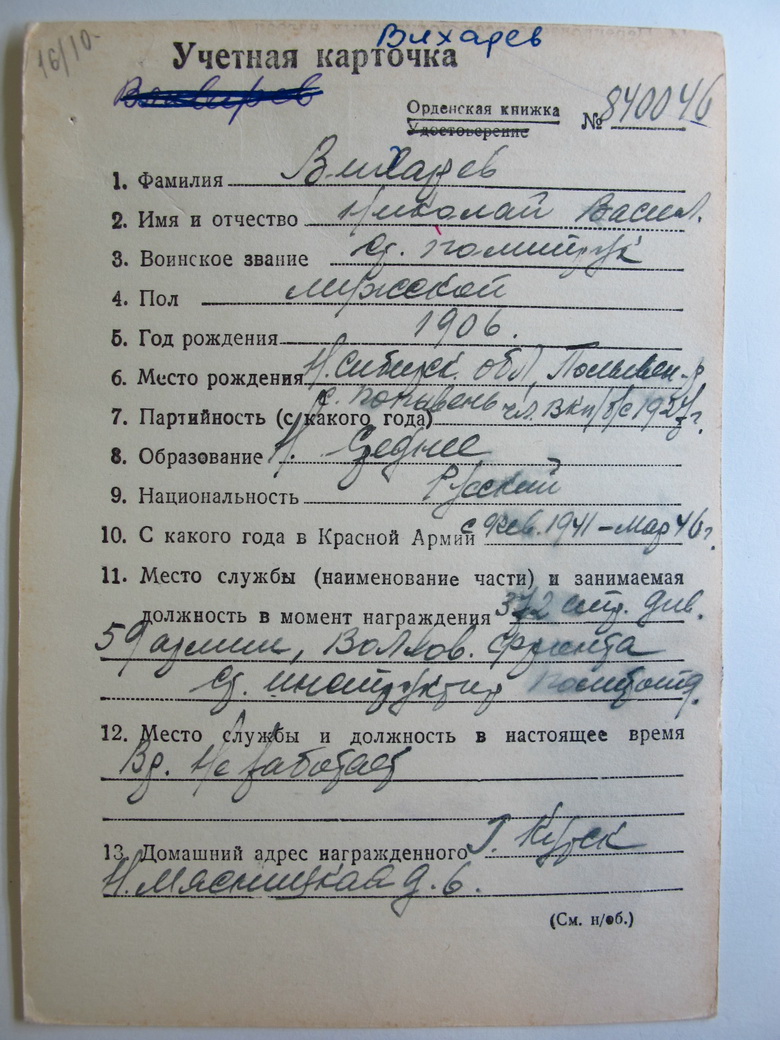 16/10-
Вихарев
Учетная карточка
Орденская книжка
Удостоверение
№ 840046
1. Фамилия Вихарев
2. Имя и отчество Николай Васил.
3. Воинское звание ст. политрук
4. Пол мужской
5. Год рождения 1906.
6. Место рождения Н.Сибирск. обл,
7. Партийность (с какого года) чл. ВКП/б/с 1927г.
8. Образование Н. Среднее
9. Национальность Русский
10. С какого года в Красной Армии с Фев. 1941 – Мар 46г.
11. Место службы (наименование части) и занимаемая
должность в момент награждения 372 стр. див.
59 армии, Волхов. фронта
Ст. инструктор политотд.
12. Место службы и должность в настоящее время
Вр. Не работает
13. Домашний адрес награжденного г. Курск
Н. Мясницкая д. 6.
(См. н/об.)